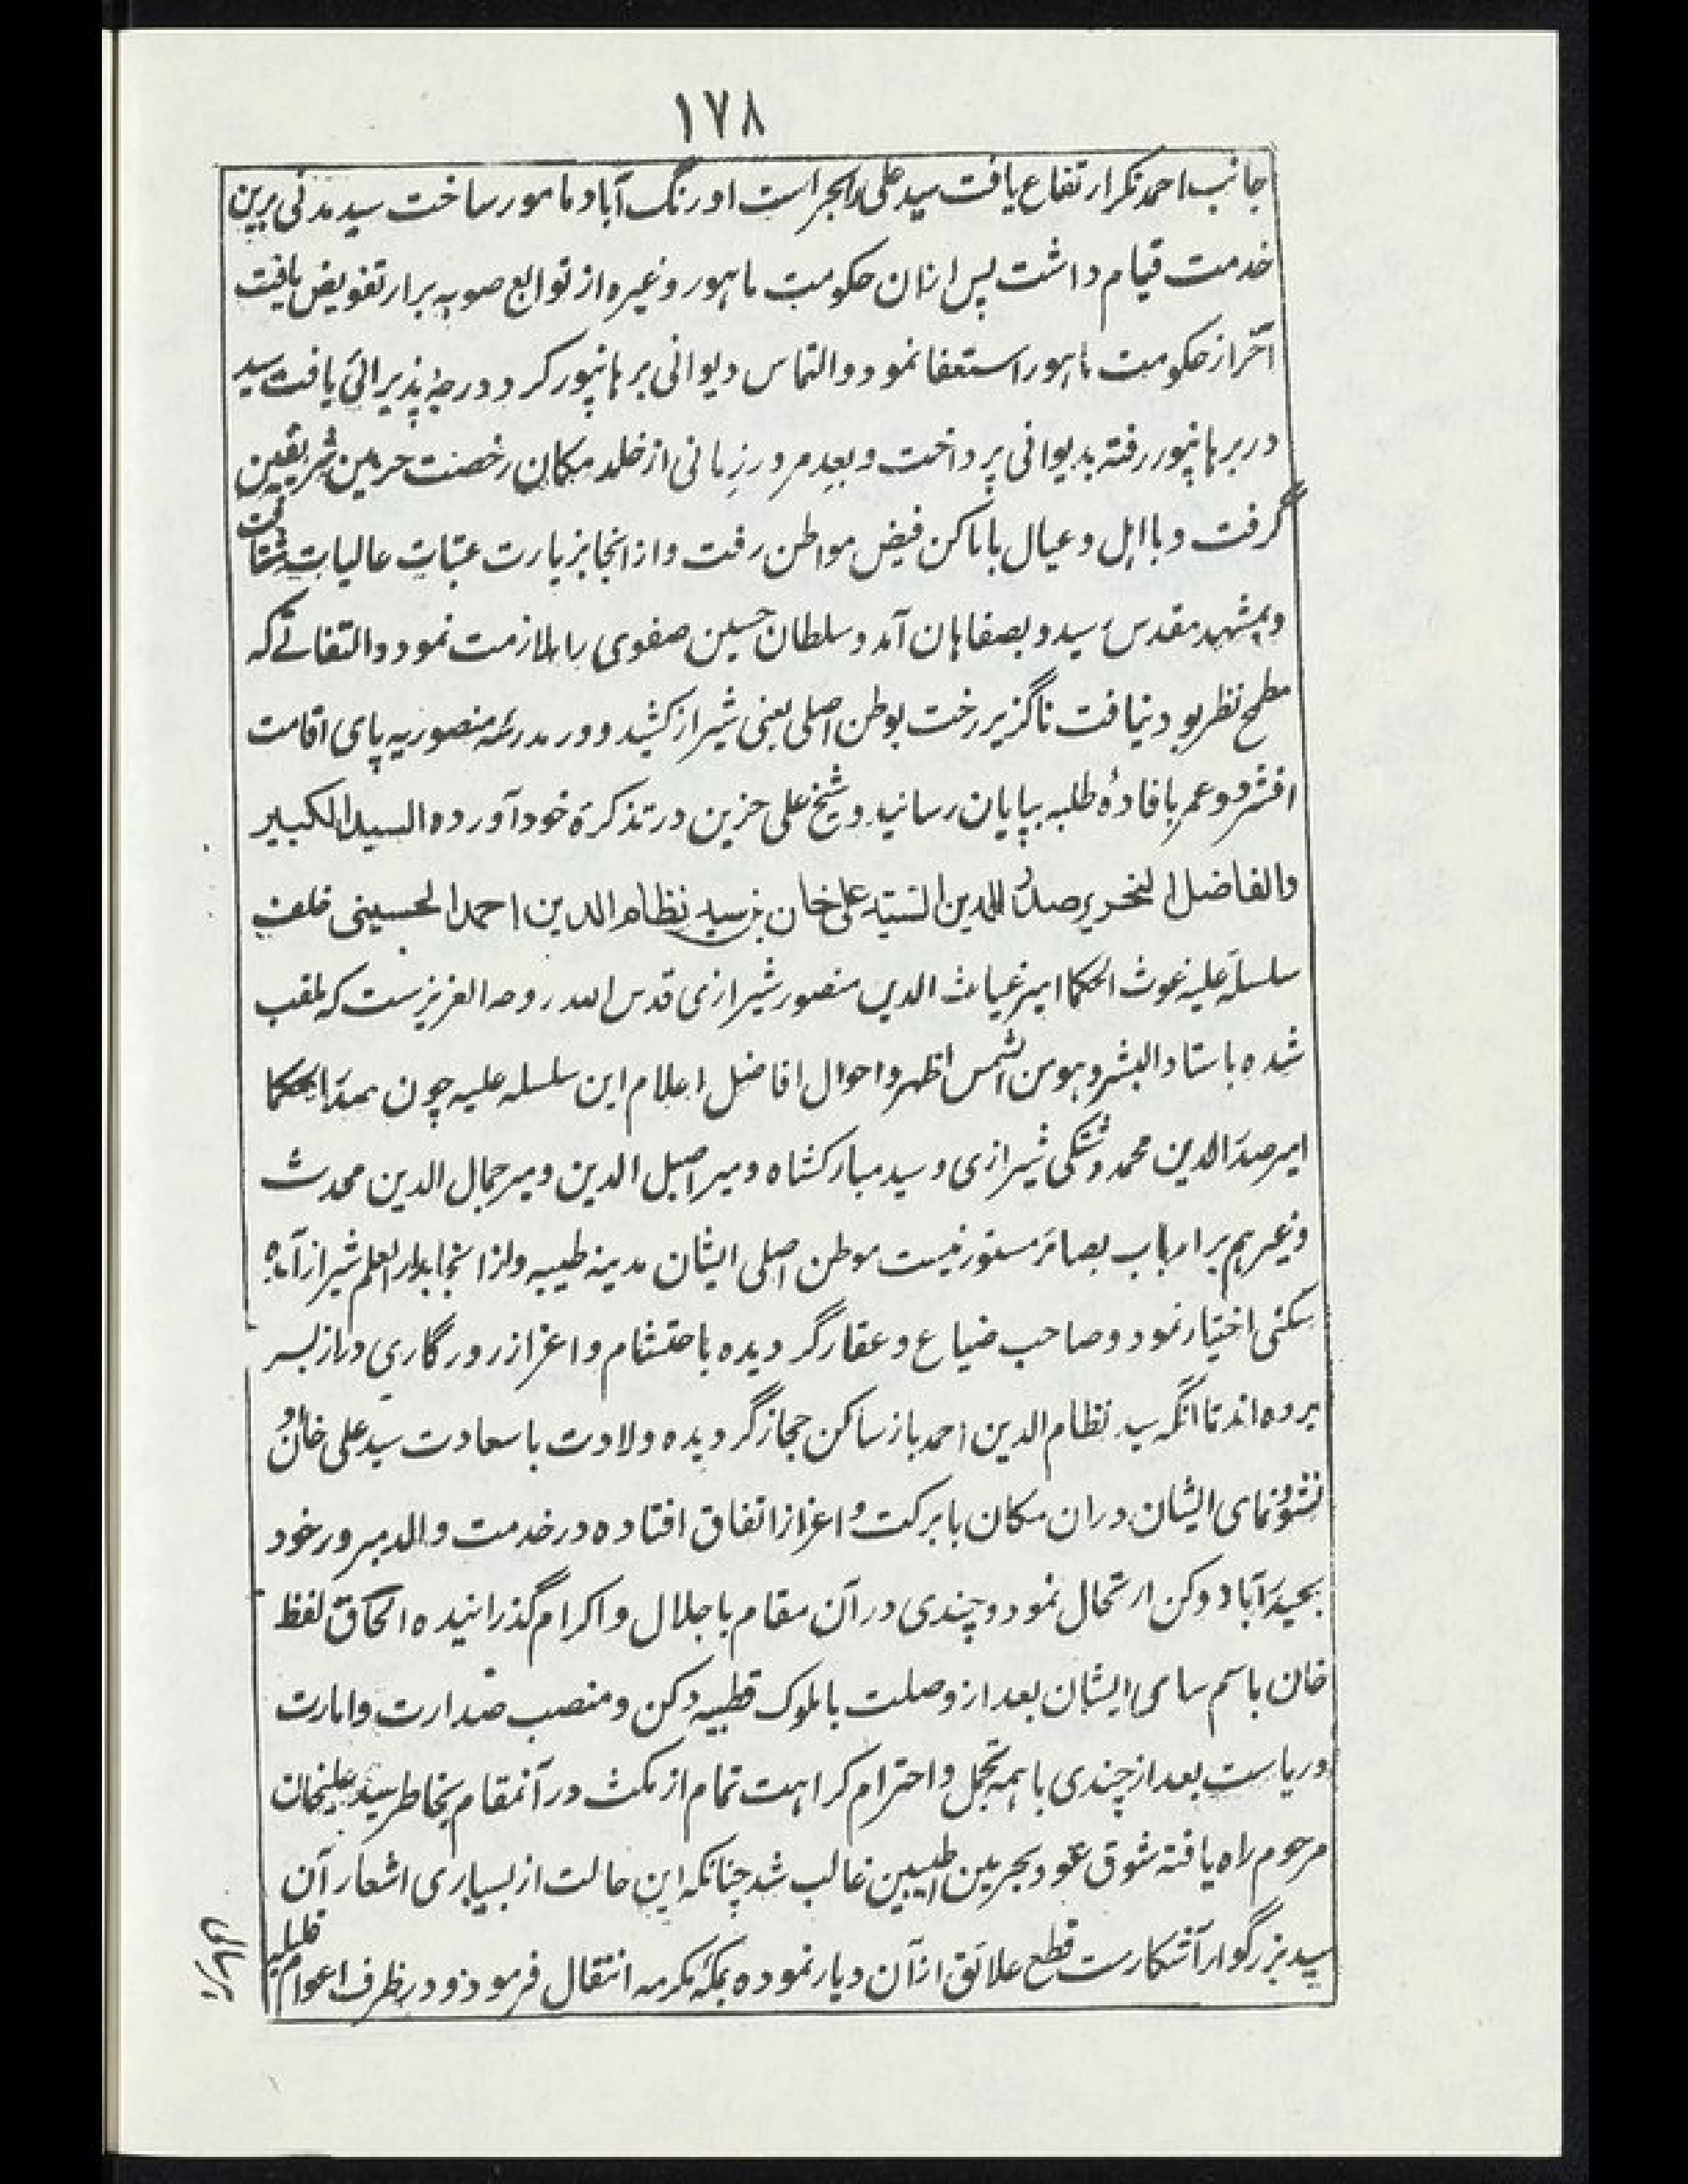 ۱۷۸
جانب احمد نکر ارتفاع یافت سید علی را بحراست اورنگ آباد مامور ساخت سید مدتی برین
خدمت قیام داشت پس ازان حکومت ماہور وغیره از توابع صوبه برار تفویض یافت
آخر از حکومت ماہور استعفا نمود والتماس دیوانی برہانپور کرد درجهٔ پذیرائی یافت سید
در برہانپور رفته بدیوانی پرداخت وبعد مرور زمانی از خلد مکان رخصت حرمین شریفین
گرفت وبا اہل وعیال باماکن فیض مواطن رفت واز انجا بزیارت عتبات عالیات شتافت
وبمشہد مقدس رسید وبصفاہان آمد وسلطان حسین صفوی را ملازمت نمود والتفاتے که
مطمح نظر بود نیافت ناگزیر رخت بوطن اصلی یعنی شیراز کشید ودر مدرسهٔ منصوریه پای اقامت
افشرد وعمر بافادهٔ طلبه بپایان رسانید وشیخ علی حزین در تذکرهٔ خود آورده السید الکبیر
والفاضل النحریر صدر الدین السید علی خان بن سید نظام الدین احمد الحسینی خلف
سلسلهٔ علیه غوث الحکما امیر غیاث الدین منصور شیرازی قدس الله روحه العزیزست که ملقب
شده باستاد البشر وہو من الشمس اظہر واحوال افاضل اعلام این سلسله علیه چون صدر الحکما
امیر صدر الدین محمد دشتکی شیرازی وسید مبارکشاه ومیر اصیل الدین ومیر جمال الدین محدث
وغیرہم بر ارباب بصائر مستور نیست موطن اصلی ایشان مدینه طیبه واز انجا بدار العلم شیراز آمده
سکنی اختیار نمود وصاحب ضیاع وعقار گردیده باحتشام واعزاز روزگاری دراز بسر
برده اند تا آنکه سید نظام الدین احمد باز ساکن حجاز گردیده ولادت باسعادت سید علی خان و
نشوونمای ایشان دران مکان با برکت و اعزاز اتفاق افتاده در خدمت والد مبرور خود
بحیدرآباد دکن ارتحال نمود وچندی در آن مقام باجلال واکرام گذرانیده الحاق لفظ
خان باسم سامی ایشان بعد از وصلت با ملوک قطبیه دکن ومنصب صدارت وامارت
وریاست بعد از چندی با ہمه تجمل واحترام کراہت تمام از مکث در آنمقام بخاطر سید علیخان
مرحوم راه یافته شوق عود بحرمین طیبین غالب شد چنانکه این حالت از بسیاری اشعار آن
سید بزرگوار آشکارست قطع علائق ازآن دیار نموده بمکه مکرمه انتقال فرمود ودر ظرف اعوام قلیله